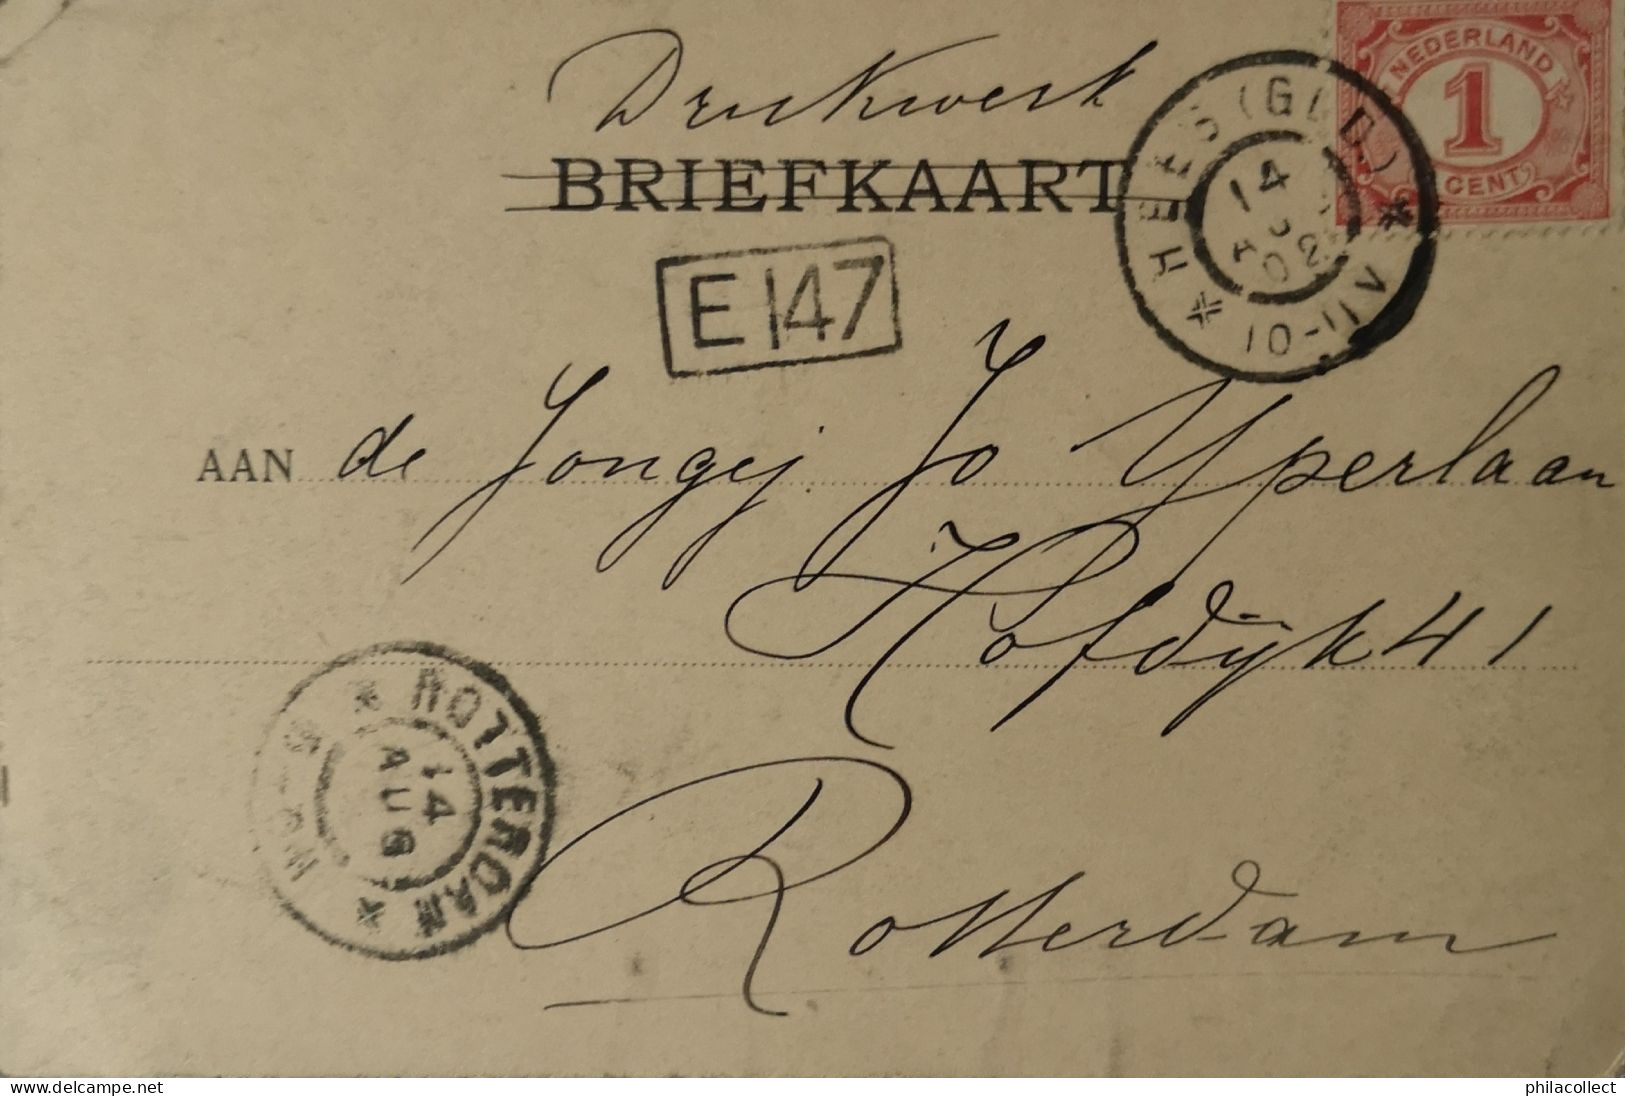 Drukwerk
BRIEFKAART
NEDERLAND
1
CENT
HEES (GLD.)
14
02
10-11V
E 147
AAN de Jongej. Jo Yperlaan
Hofdijk 41
Rotterdam
ROTTERDAM
14
AUG
philacollect